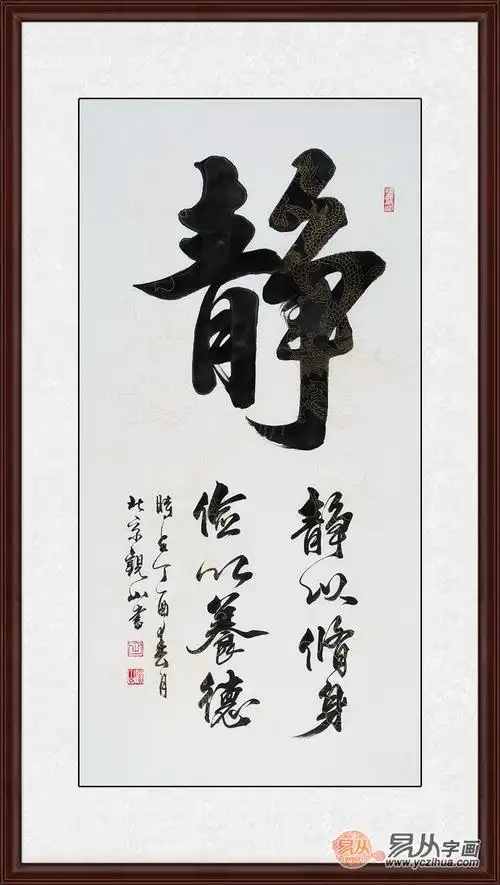 静
静以脩身
俭以养德
時在丁酉年春月
北京觀山書
易从
易从字画
www.yczihua.com